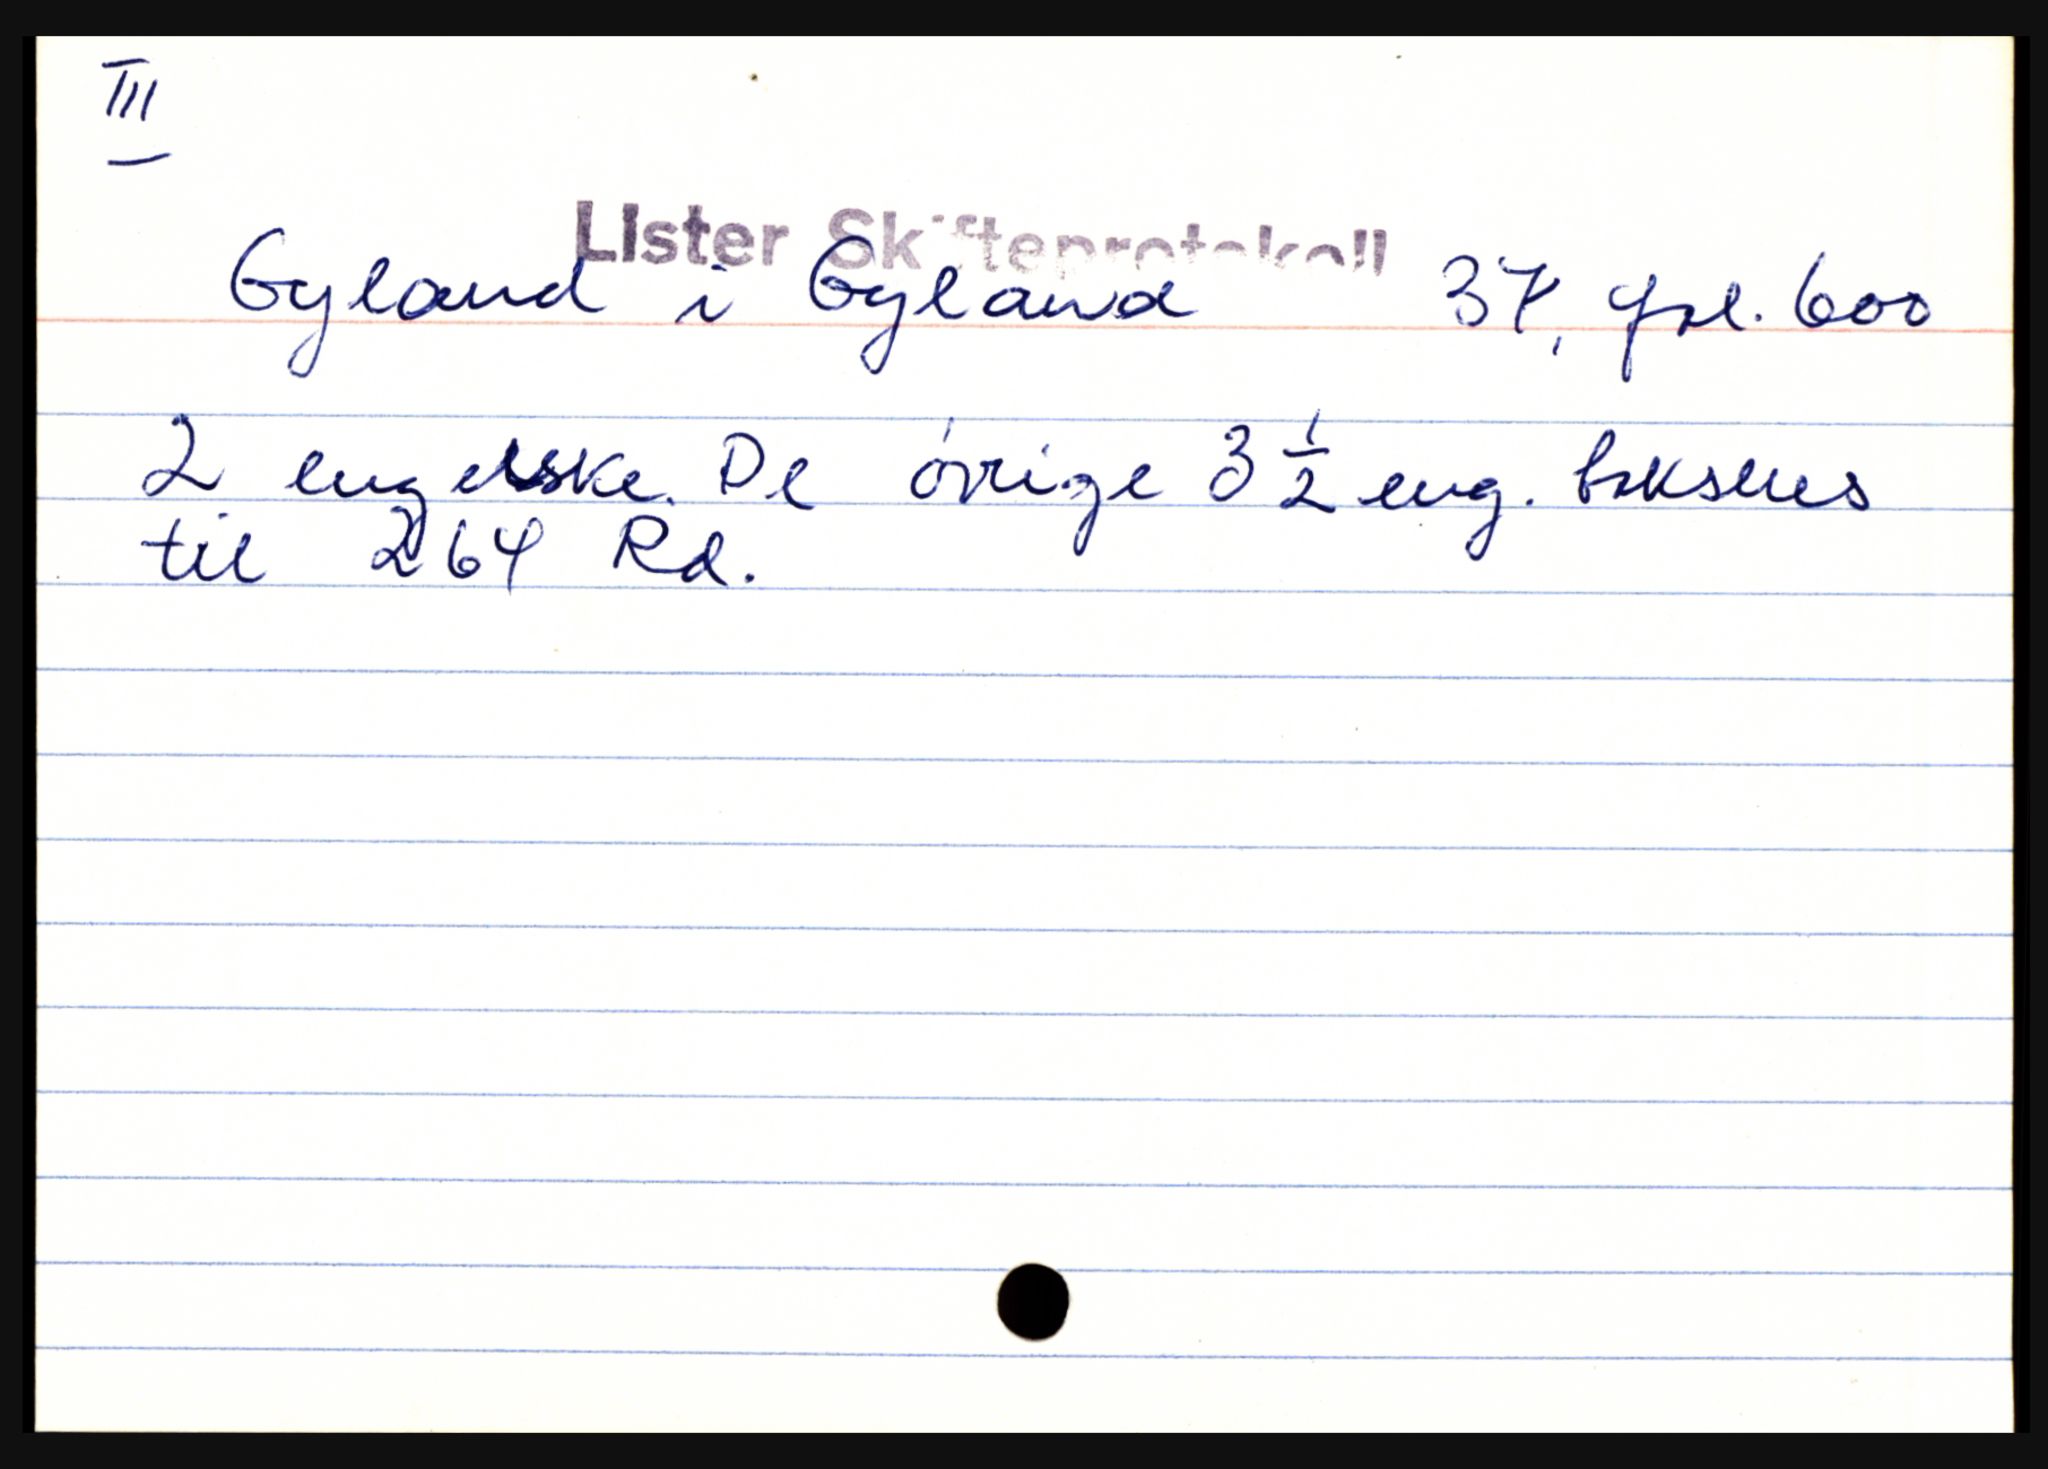 III
Lister Skifteprotokoll
Gyland i Gyland 37, fol. 600
2 engelske. De øvrige 3 1/2 eng. takseres
til 264 Rd.